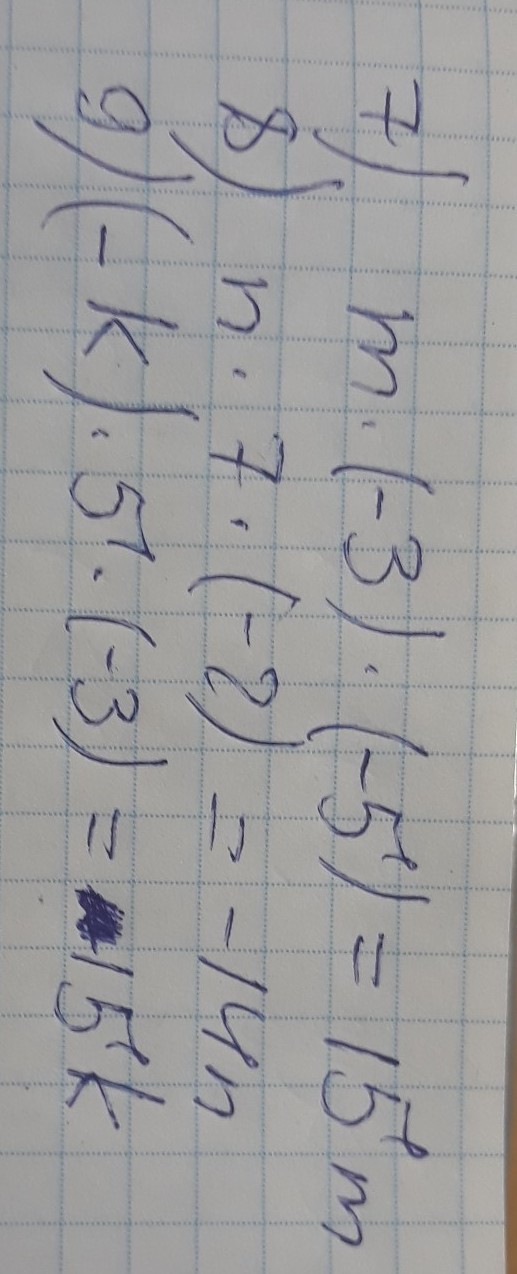 7) m · (-3) · (-5) = 15m
8) n · 7 · (-2) = -14n
9) (-k) · 5 · (-3) = 15k